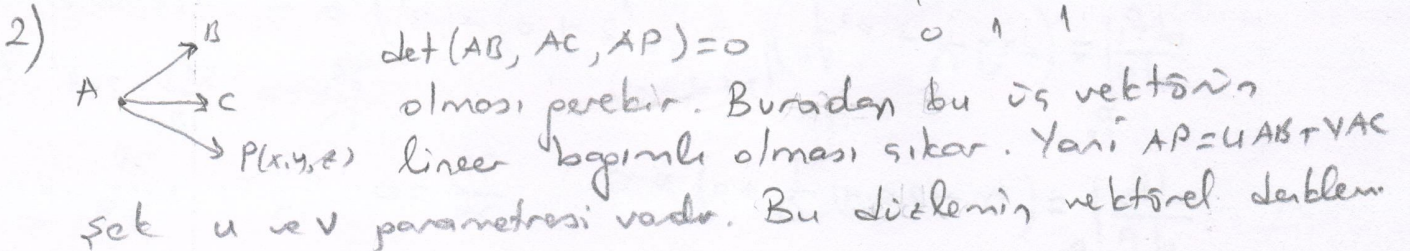 2) B det(AB, AC, AP)=0 0 1 1
A C olması gerekir. Buradan bu üç vektörün
P(x,y,z) lineer bağımlı olması çıkar. Yani AP=uAB+vAC
şek u ve v parametresi vardır. Bu düzlemin vektörel denklem